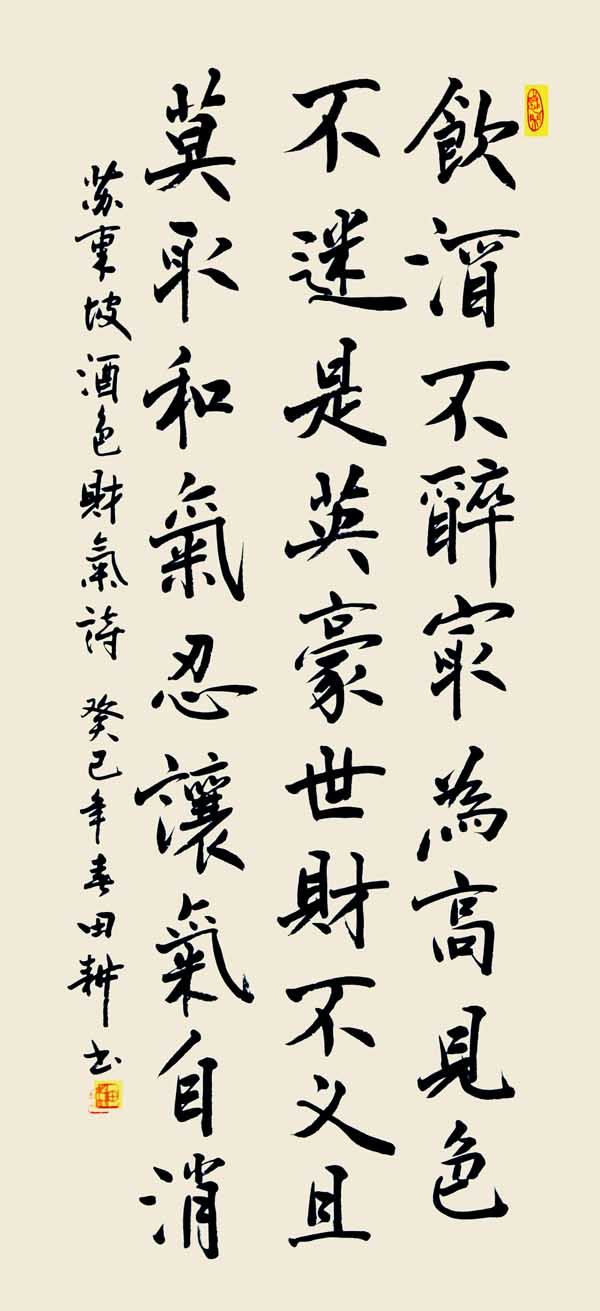 飲酒不醉㝡為高見色
不迷是英豪世財不义且
莫取和氣忍讓氣自消
苏東坡酒色財氣詩 癸巳年春田耕书